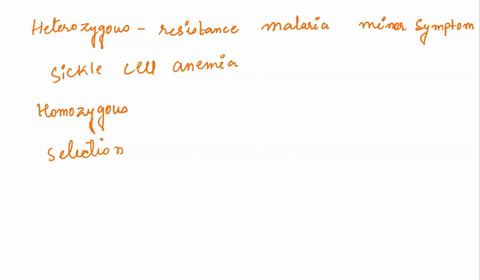 Heterozygous - resistance malaria minor symptom
Sickle cell anemia
Homozygous
Selection